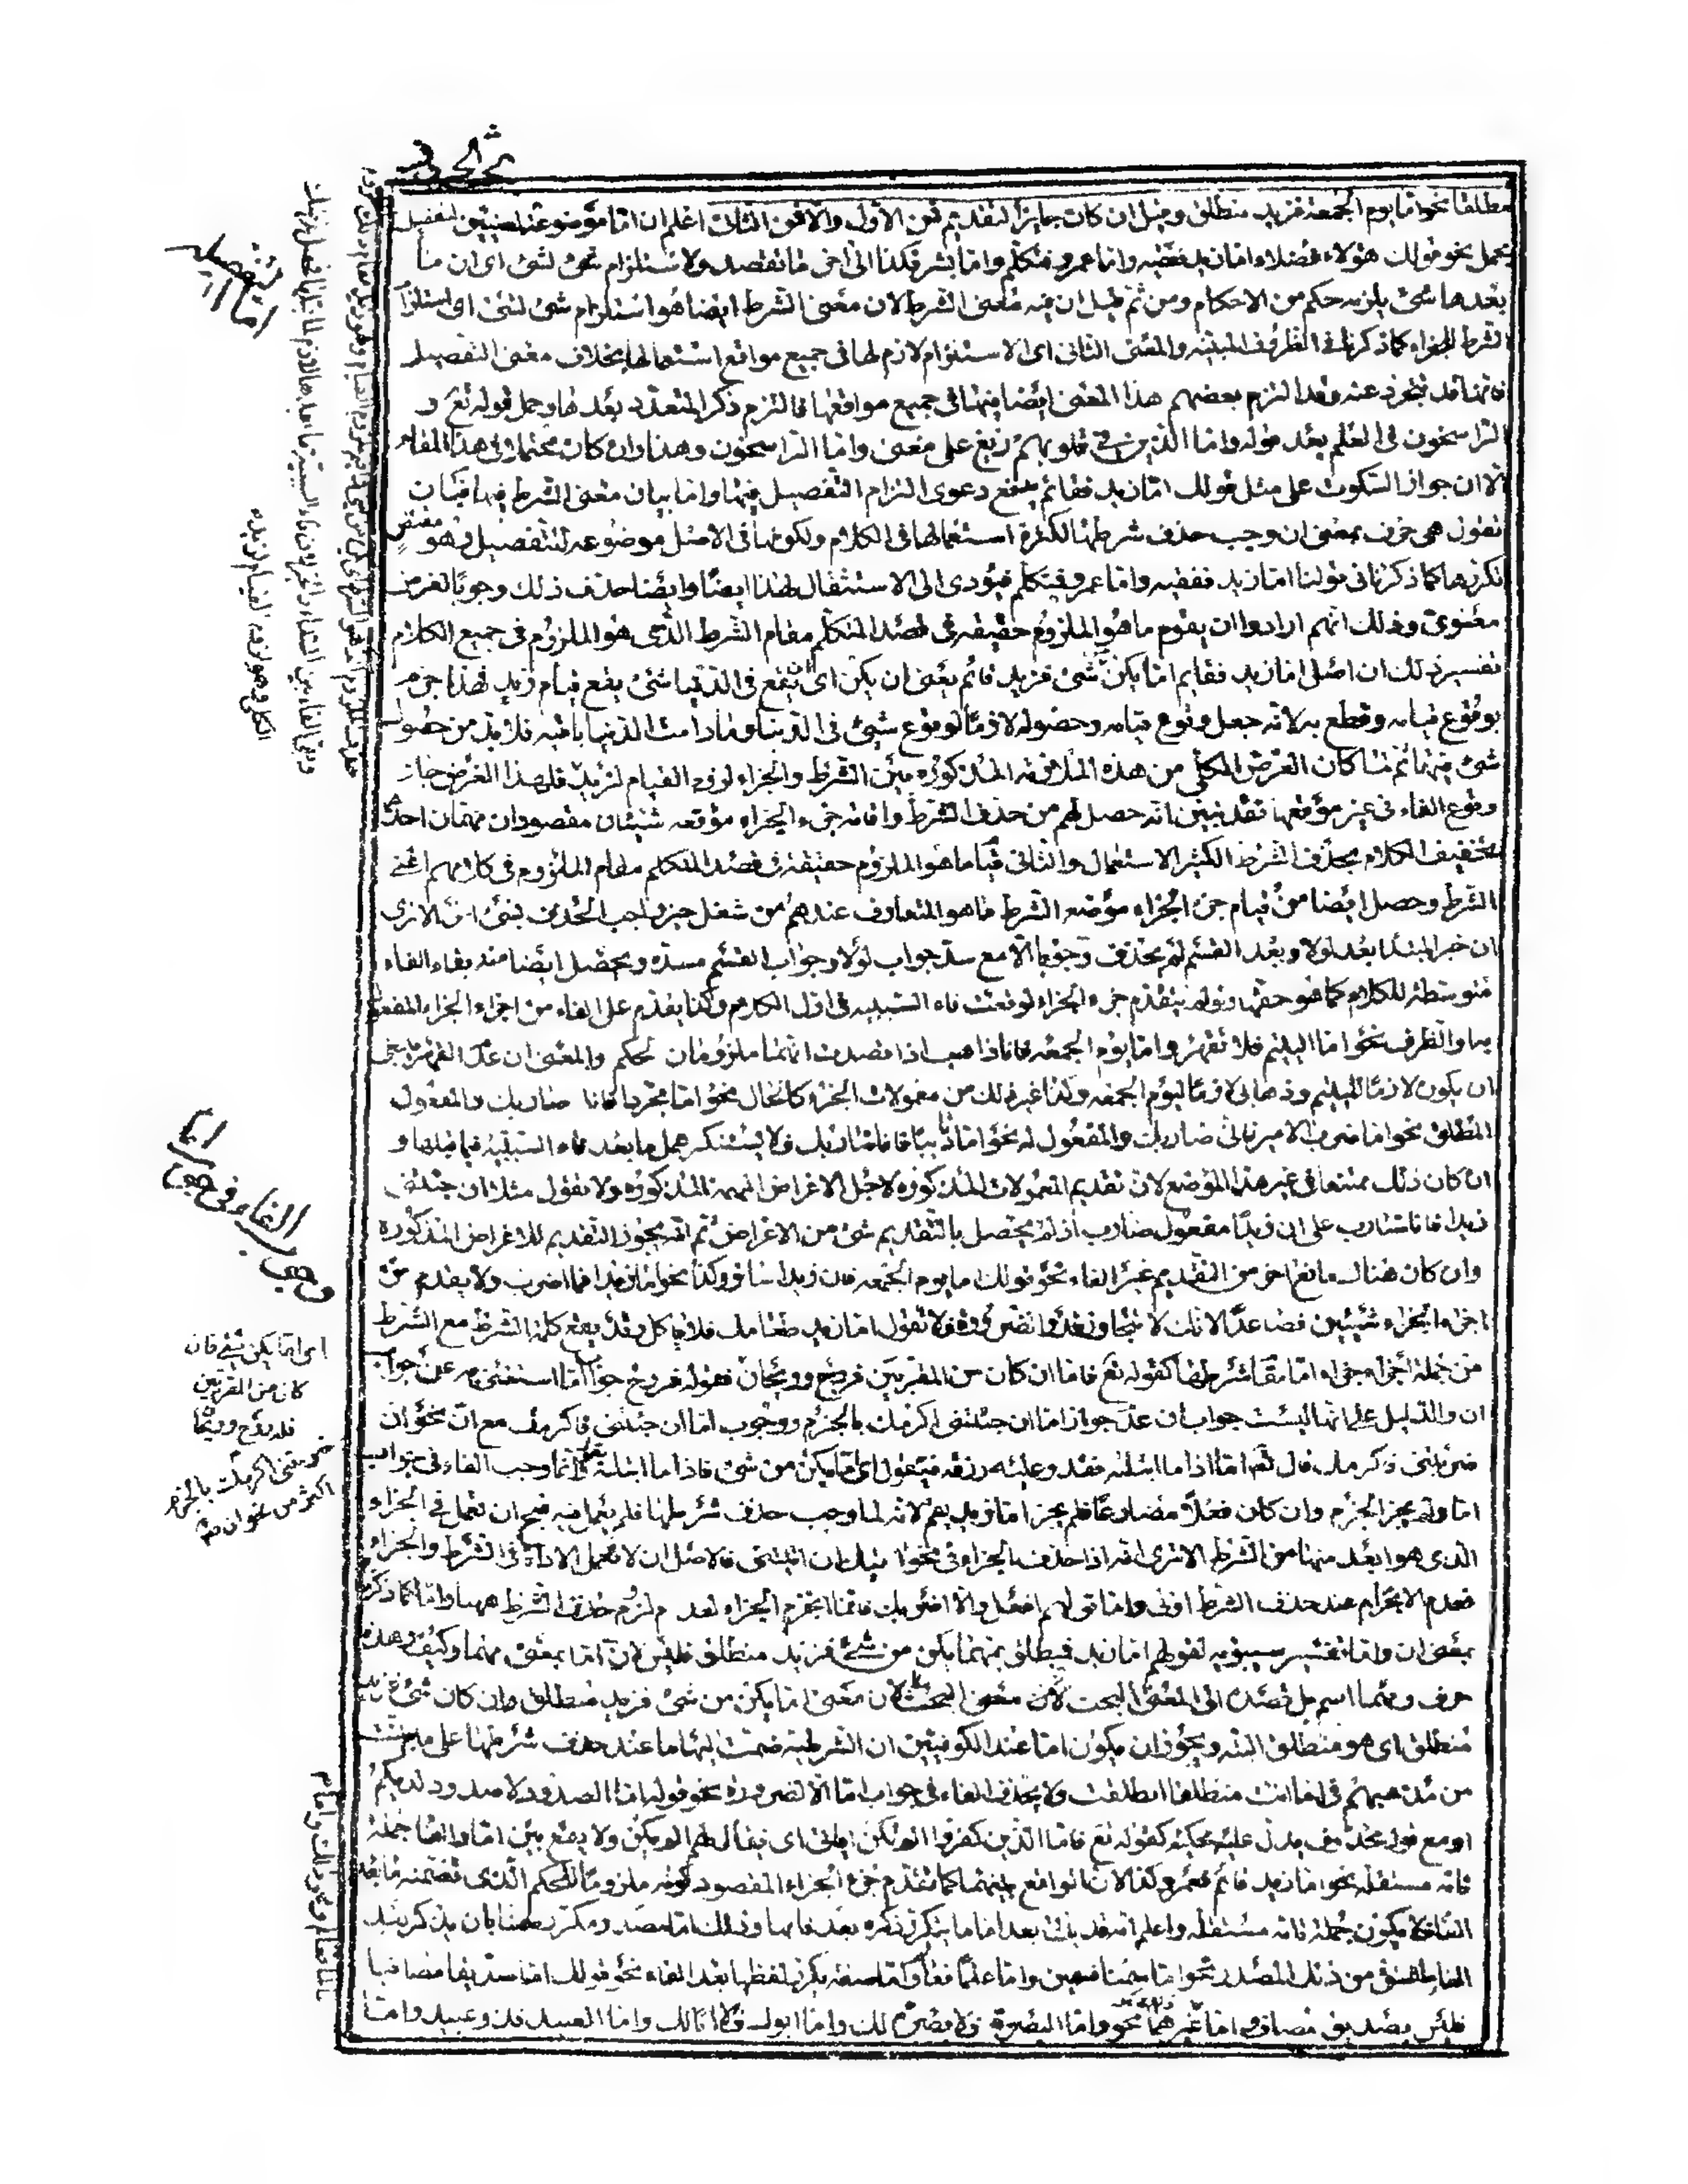 مطلقا نحو اما يوم الجمعة فزيد منطلق وقيل ان كان جايز التقديم فمن الاول والا فمن الثانى اعلم ان اما موضوعة لمعنيين لتفصيل
مجمل نحو قولك هؤلاء فضلاء اما زيد ففقيه واما عمرو فمتكلم واما بشر فكذا الى اخر ما تقصد ولاستلزام شئ لشئ اى ان ما
بعدها شئ يلزمه حكم من الاحكام ومن ثم قيل ان فيه معنى الشرط لان معنى الشرط ايضا هو استلزام شئ لشئ اى استلزام
الشرط للجزاء كما ذكرنا فى الظروف المبنية والمعنى الثانى اى الاستلزام لازم لها فى جميع مواقع استعمالها بخلاف معنى التفصيل
فانها قد تتجرد عنه وقد التزم بعضهم هذا المعنى ايضا فيها فى جميع مواقعها فالتزم ذكر المتعدد بعدها وحمل قوله تع و
الراسخون فى العلم بعد قوله واما الذين فى قلوبهم زيغ على معنى واما الراسخون وهذا وان كان محتملا فى هذا المقام
الا ان جواز السكوت على مثل قولك اما زيد فقائم يدفع دعوى التزام التفصيل فيها واما بيان معنى الشرط فيها فبان
نقول هى حرف بمعنى ان وجب حذف شرطها لكثرة استعمالها فى الكلام ولكونها فى الاصل موضوعة للتفصيل وهو مقتض
تكررها كما ذكرنا فى قولنا اما زيد ففقيه واما عمرو فمتكلم فيؤدى الى الاستثقال لهذا ايضا وايضا حذف ذلك وجوبا لغرض
معنوى وذلك انهم ارادوا ان يقوم ما هو الملزوم حقيقة فى قصد المتكلم مقام الشرط الذى هو الملزوم فى جميع الكلام
تفسير ذلك ان اصل اما زيد فقايم اما يكن شئ فزيد قائم يعنى ان يكن اى ان يقع فى الدنيا شئ يقع قيام زيد فهذا جزم
بوقوع قيامه وقطع به لانه جعل وقوع قيامه وحصوله لازما لوقوع شئ فى الدنيا وما دامت الدنيا باقية فلا بد من حصول
شئ فيها ثم لما كان الغرض الكلى من هذه الملازمة المذكورة بين الشرط والجزاء لزوم القيام لزيد فلهذا الغرض جاز
وقوع الفاء فى غير موقعها فقد تبين انه حصل لهم من حذف الشرط واقامة جزء الجزاء موقعه شيئان مقصودان مهمان احدهما
تخفيف الكلام بحذف الشرط الكثير الاستعمال والثانى قيام ما هو الملزوم حقيقة فى قصد المتكلم مقام الملزوم فى كلامهم اعنى
الشرط وحصل ايضا من قيام جزء الجزاء موضع الشرط ما هو المتعارف عندهم من شغل حيز واجب الحذف بشئ اخر الا ترى
ان خبر المبتدا بعد لولا وبعد القسم لم يحذف وجوبا الا مع سد جواب لولا وجواب القسم مسده ويحصل ايضا منه بقاء الفاء
متوسطة للكلام كما هو حقها ولو لم يتقدم جزء الجزاء لوقعت فاء السببية فى اول الكلام وكذا يقدم على الفاء من اجزاء الجزاء المفعول
به او الظرف نحو اما اليتيم فلا تقهر واما يوم الجمعة فانا ذاهب اذا قصدت انهما ملزومان لحكم والمعنى ان عدم القهر ينبغى
ان يكون لازما لليتيم وذهابى لازما ليوم الجمعة وكذا غير ذلك من معمولات الجزاء كالحال نحو اما مجردا فانا ضاربك والمفعول
المطلق نحو اما ضرب الامير فانى ضاربك والمفعول له نحو اما تاديبا فانا ضاربك ولا يستنكر عمل ما بعد فاء السببية فيما قبلها و
ان كان ذلك ممتنعا فى غير هذا الموضع لان تقديم المعمولات المذكورة لاجل الاغراض المهمة المذكورة ولا تقول مثلا ان جئتنى
زيدا فانا ضارب على ان زيدا مفعول ضارب اذ لم يحصل بالتقديم شئ من الاغراض ثم انه يجوز التقديم للاغراض المذكورة
وان كان هناك مانع اخر من التقديم غير الفاء نحو قولك اما يوم الجمعة فان زيدا سائر وكذا نحو اما زيدا فما اضرب ولا يقدم من
اجزاء الجزاء شيئين فصاعدا لانك لا تتجاوز قدر الضرورة فلا تقول اما زيد طعامك فلا ياكل وقد يقع كلمة الشرط مع الشرط
من جملة اجزاء جزاء اما مقام شرطها كقوله تع فاما ان كان من المقربين فروح وريحان فقوله فروح جواب اما استغنى به عن جواب
ان والدليل على انها ليست جواب ان عدم جواز اما ان جئتنى اكرمك بالجزم ووجوب اما ان جئتنى فاكرمك مع ان نحو ان
ضربتنى اكرمك قال تع اما اذا ما ابتليه فقدر عليه رزقه فيقول اى اما يكن من شئ فاذا ما ابتليه وانما وجب الفاء فى جواب
اما ولم يجز الجزم وان كان فعلا مضارعا فلم يجز اما زيد يقم لانه لما وجب حذف شرطها فلم يعمل فيه قبح ان تعمل فى الجزاء
الذى هو ابعد منها من الشرط الا ترى انه اذا حذف الجزاء فى نحو اتيك ان اتيتنى فالاصل ان لا تعمل الاداة فى الشرط والجزاء
فعدم الانجزام عند حذف الشرط اولى واما قولهم افعل والا اضربك فانما انجزم الجزاء لعدم لزوم حذف الشرط ههنا واما كما ذكرنا
بمعنى ان واما تفسير سيبويه لقولهم اما زيد فمنطلق بمهما يكن من شئ فزيد منطلق فليس لان اما بمعنى مهما وكيف وهذه
حرف ومهما اسم بل قصده الى المعنى البحت لان معنى اما يكن من شئ فزيد منطلق وان كان شئ فزيد
منطلق اى هو منطلق البتة ويجوز ان يكون اما عند الكوفيين ان الشرطية ضمت اليها ما عند حذف شرطها على ما
من مذهبهم فى اما انت منطلقا انطلقت ولا يحذف الفاء فى جواب اما الا لضرورة نحو قوله اما الصدور لا صدور لديكم
او مع قول محذوف يدل عليه محكيه كقوله تع فاما الذين كفروا الم تكن اياتى اى فيقال لهم الم يكن ولا يقع بين اما وفائها جملة
تامة مستقلة نحو اما زيد قائم فعمرو كذا لان الواقع بينهما كما تقدم جزء الجزاء المقصود كونه ملزوما للحكم الذى تضمنه ما بعد
الفاء فلا يكون جملة تامة مستقلة واعلم انه قد ياتى بعد اما ما يتكرر ذكره بعد فائها وذلك اما مصدر مكرر ضمنا بان يذكر بعد
الفاء ما اشتق من ذلك المصدر نحو اما سمنا فسمين واما علما فعالم واما صفة يكرر لفظها بعد الفاء نحو قولك اما صديقا مصافيا
فليس بصديق مصاف واما غيرهما نحو واما البصرة فلا بصرة لك واما ابوك فلا ابا لك واما العبيد فذو عبيد واما
اما التفصيلية
وجوب الفاء فى جواب اما
اى اما يكن شئ فان
كان من المقربين
فله روح وريحان
ضربتنى اكرمك بالجزم
اكثر من نحو ان